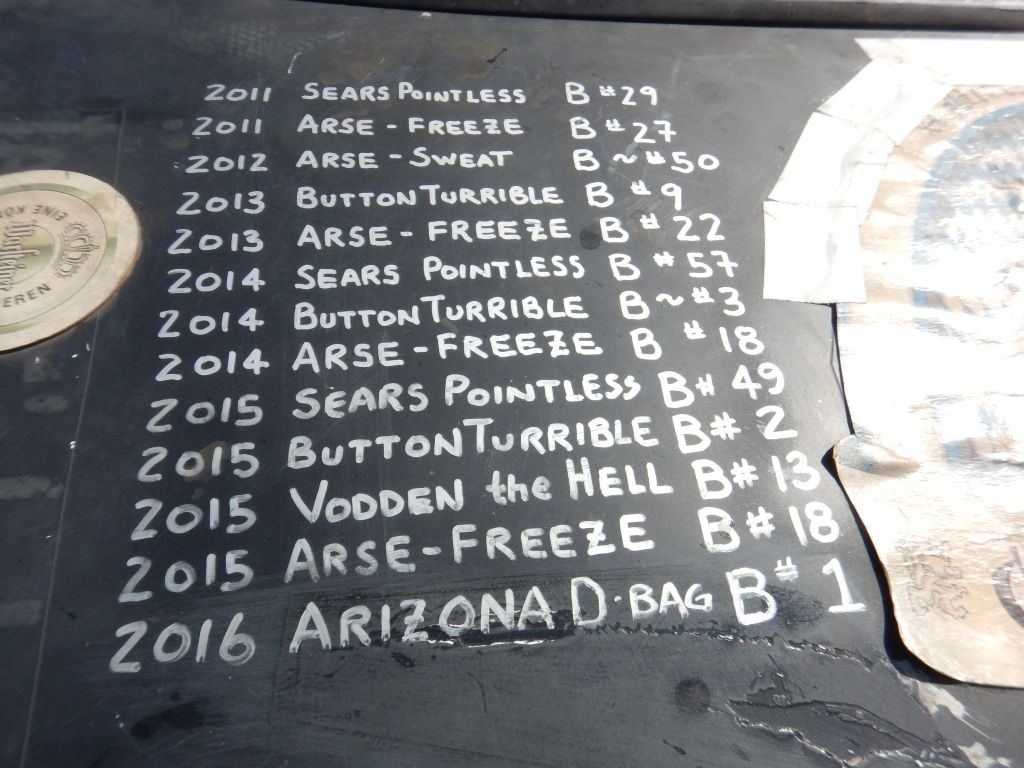 2011 SEARS POINTLESS B #29
2011 ARSE-FREEZE B #27
2012 ARSE-SWEAT B ~ #50
2013 BUTTONTURRIBLE B #9
2013 ARSE-FREEZE B #22
2014 SEARS POINTLESS B #57
2014 BUTTONTURRIBLE B ~ #3
2014 ARSE-FREEZE B #18
2015 SEARS POINTLESS B# 49
2015 BUTTONTURRIBLE B# 2
2015 VODDEN the HELL B# 13
2015 ARSE-FREEZE B# 18
2016 ARIZONA D·BAG B# 1
EINE